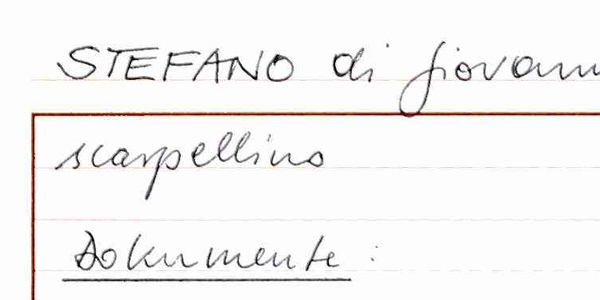 STEFANO di Giovanni
scarpellino
Dokumente :